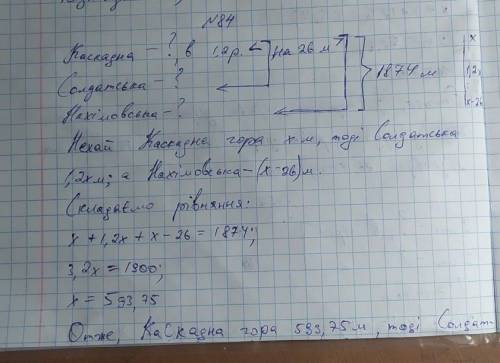 №84
Каскадна – ?, в 1,2р. < на 26 м > 1874 м
х
Солдатська – ?
1,2
Нахімовська – ?
х-26
Нехай Каскадна гора х м, тоді Солдатська
1,2х м; а Нахімовська – (х-26) м.
Складаємо рівняння:
х + 1,2х + х – 26 = 1874;
3,2х = 1900;
х = 593,75
Отже, Каскадна гора 593,75 м, тоді Солдат